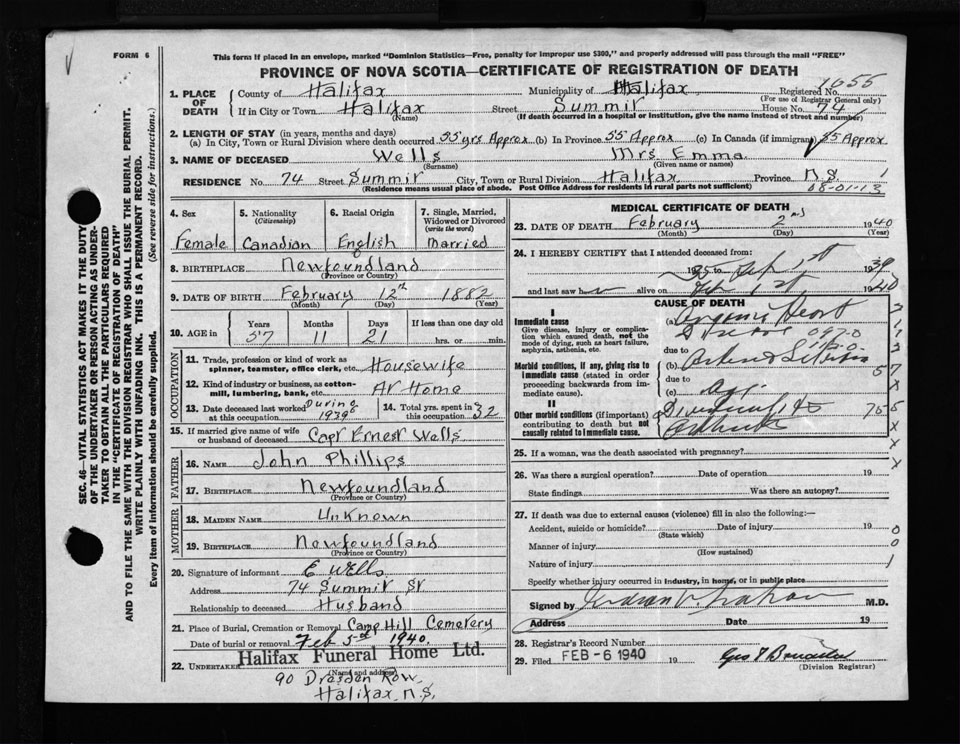 FORM 6
This form if placed in an envelope, marked "Dominion Statistics—Free, penalty for improper use $300," and properly addressed will pass through the mail "FREE"
PROVINCE OF NOVA SCOTIA—CERTIFICATE OF REGISTRATION OF DEATH
SEC. 46—VITAL STATISTICS ACT MAKES IT THE DUTY
OF THE UNDERTAKER OR PERSON ACTING AS UNDER-
TAKER TO OBTAIN ALL THE PARTICULARS REQUIRED
IN THE "CERTIFICATE OF REGISTRATION OF DEATH"
AND TO FILE THE SAME WITH THE DIVISION REGISTRAR WHO SHALL ISSUE THE BURIAL PERMIT.
WRITE PLAINLY WITH UNFADING INK. THIS IS A PERMANENT RECORD.
Every item of information should be carefully supplied. (See reverse side for instructions.)
1. PLACE OF DEATH
County of Halifax Municipality of Halifax Registered No. 1655
(For use of Registrar General only)
If in City or Town Halifax Street Summit House No. 74
(Name) (If death occurred in a hospital or institution, give the name instead of street and number)
2. LENGTH OF STAY (in years, months and days)
(a) In City, Town or Rural Division where death occurred 55 yrs Approx (b) In Province 55 Approx (c) In Canada (if immigrant) 55 Approx
3. NAME OF DECEASED Wells Mrs Emma
(Surname) (Given name or names)
RESIDENCE No. 74 Street Summit City, Town or Rural Division Halifax Province N.S. 1
(Residence means usual place of abode. Post Office Address for residents in rural parts not sufficient) 08-01-13
4. Sex Female
5. Nationality (Citizenship) Canadian
6. Racial Origin English
7. Single, Married, Widowed or Divorced (write the word) Married
8. BIRTHPLACE Newfoundland
(Province or Country)
9. DATE OF BIRTH February 12th 1882
(Month) (Day) (Year)
10. AGE in Years 57 Months 11 Days 21 If less than one day old hrs. or min.
OCCUPATION
11. Trade, profession or kind of work as spinner, teamster, office clerk, etc. Housewife
12. Kind of industry or business, as cotton-mill, lumbering, bank, etc. At Home
13. Date deceased last worked at this occupation During 1939
14. Total yrs. spent in this occupation 32
15. If married give name of wife or husband of deceased Capt Ernest Wells
FATHER
16. NAME John Phillips
17. BIRTHPLACE Newfoundland
(Province or Country)
MOTHER
18. MAIDEN NAME Unknown
19. BIRTHPLACE Newfoundland
(Province or Country)
20. Signature of informant E Wells
Address 74 Summit St
Relationship to deceased Husband
21. Place of Burial, Cremation or Removal Camp Hill Cemetery
Date of burial or removal Feb 5th 1940
22. UNDERTAKER Halifax Funeral Home Ltd.
(Name and address)
90 Dresden Row
Halifax, N.S.
MEDICAL CERTIFICATE OF DEATH
23. DATE OF DEATH February 2nd 1940
(Month) (Day) (Year)
24. I HEREBY CERTIFY that I attended deceased from:
1939
and last saw h alive on Feb 1st 1940
CAUSE OF DEATH
I
Immediate cause
Give disease, injury or complication which caused death, not the mode of dying, such as heart failure, asphyxia, asthenia, etc.
(a) Heart
due to
Morbid conditions, if any, giving rise to immediate cause (stated in order proceeding backwards from immediate cause).
(b)
due to
(c)
II
Other morbid conditions (if important) contributing to death but not causally related to immediate cause.
25. If a woman, was the death associated with pregnancy?
26. Was there a surgical operation? Date of operation 19
State findings Was there an autopsy?
27. If death was due to external causes (violence) fill in also the following:—
Accident, suicide or homicide? Date of injury 19
(State which)
Manner of injury
(How sustained)
Nature of injury
Specify whether injury occurred in industry, in home, or in public place
Signed by M.D.
Address Date 19
28. Registrar's Record Number
29. Filed FEB - 6 1940 19
(Division Registrar)